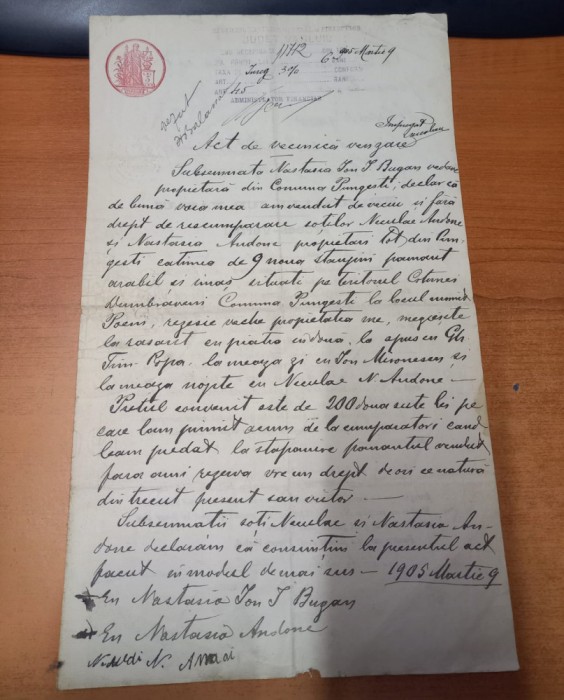 1172
905 Martie 9
3%
45
ADMINISTRATOR FINANCIAR
Act de vecinică vinzare
Subsemnata Nastasia Ion I Bugan vaduva
propietară din Comuna Pungesti, declar că
de bună voea mea am vendut de veciu și fără
drept de rescumparare soților Neculae Andone
și Nastasia Andone propietari tot din Pun-
gesti catimea de 9 noua stanjini pamant
arabil și imaș situate pe teritorul Cotunei
Dumbraveni Comuna Pungeste la locul numit
Poeni, regesie veche propietatea me, megieșite
la rasarit cu piatia indoua, la apus cu Gh
Tim. Popa, la meaza zi cu Ion Mironescu și
la meaza nopte cu Neculae N. Andone —
Pretul convenit este de 200 doua sute lei pe
care lam primit acum de la cumparatori cand
leam predat la stapanire pamantul vendut
fara ami rezerva vre un drept de ori ce natură
din trecut present sau viitor. —
Subsemnatii soți Neculae si Nastasia An-
done declarăm că consimțim la presentul act
facut in modul de mai sus — 1905 Martie 9
+ Eu Nastasia Ion I Bugan
+ Eu Nastasia Andone